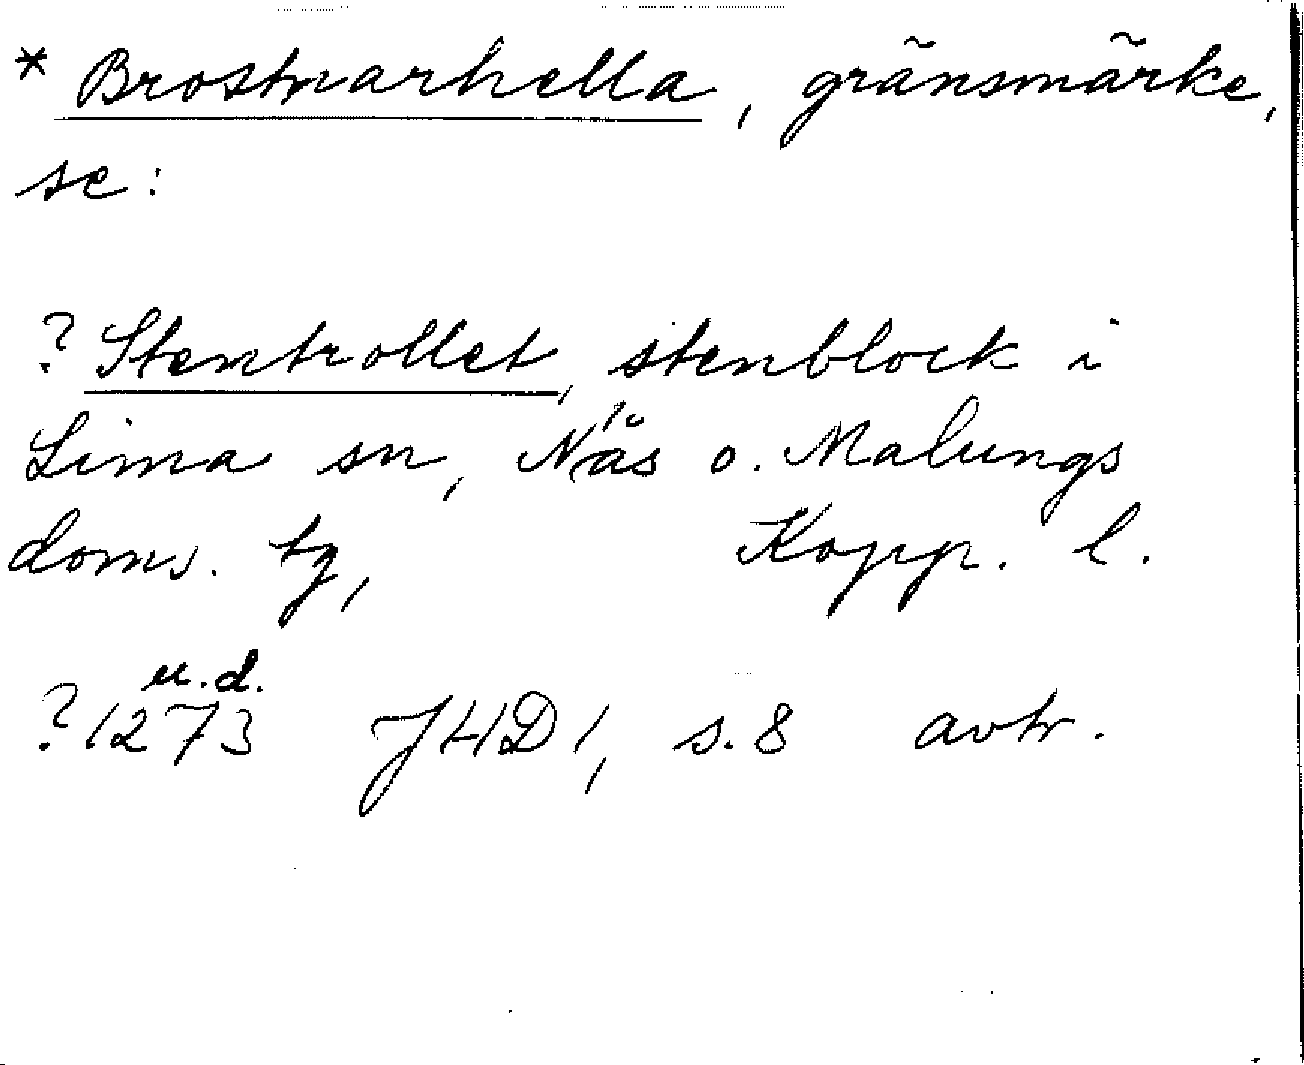 * Brostnarhella, gränsmärke,
se:
? Stentrollet, stenblock i
Lima sn, Näs o. Malungs
doms. tg, Kopp. l.
u.d.
? 1273 JHD 1, s. 8 avtr.